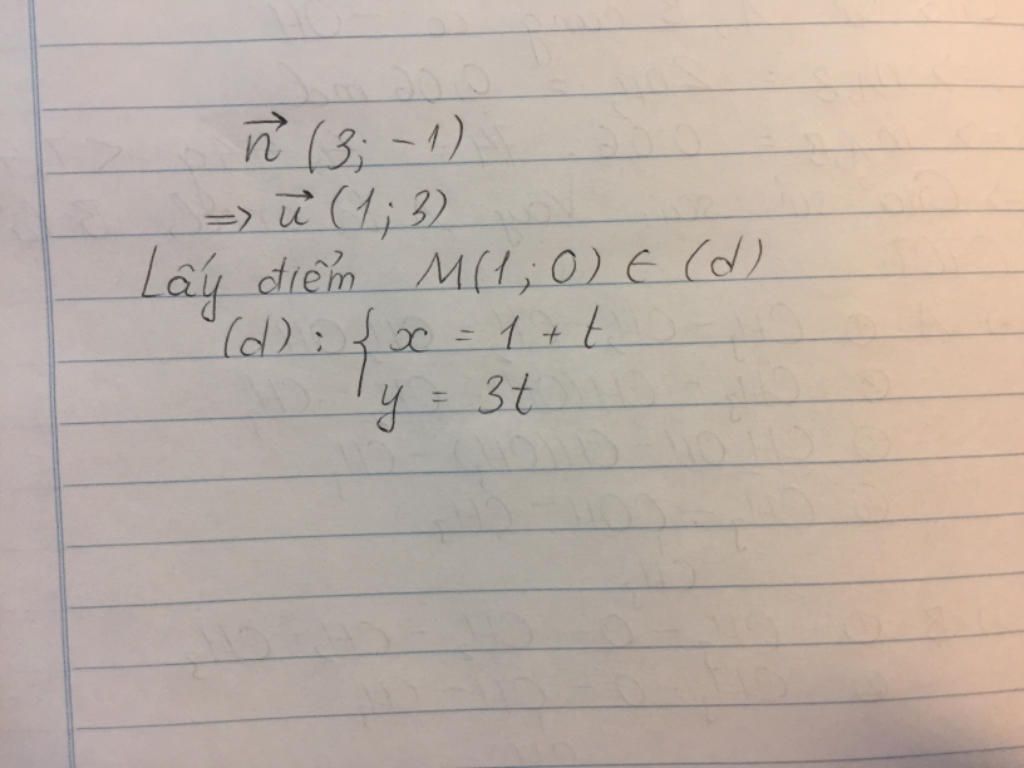 n⃗ (3; -1)
=> u⃗ (1; 3)
Lấy điểm M(1; 0) ∈ (d)
(d) : { x = 1 + t
y = 3t